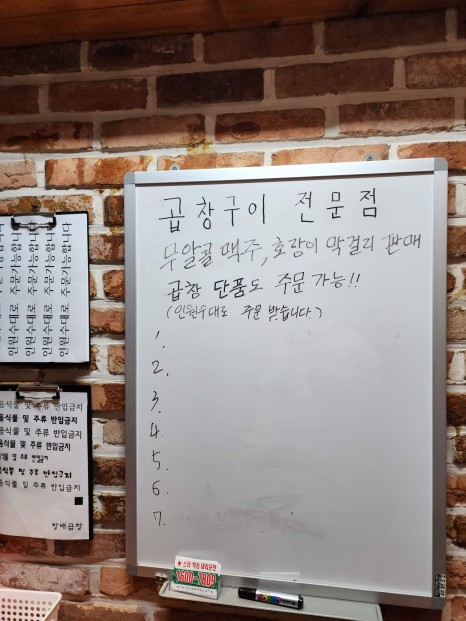 곱창구이 전문점
무알콜 맥주, 호랑이 막걸리 판매
곱창 단품도 주문 가능!!
(인원수대로 주문 받습니다)
1.
2.
3.
4.
5.
6.
7.
인원수대로 주문가능합니다
인원수대로 주문가능합니다
인원수대로 주문가능합니다
인원수대로 주문가능합니다
음식물 및 주류 반입금지
음식물 및 주류 반입금지
음식물 및 주류 반입금지
음식물 및 주류 반입금지
음식물 및 주류 반입금지
음식물 및 주류 반입금지
방배곱창
★스타 착송 대리운전
1600-7809